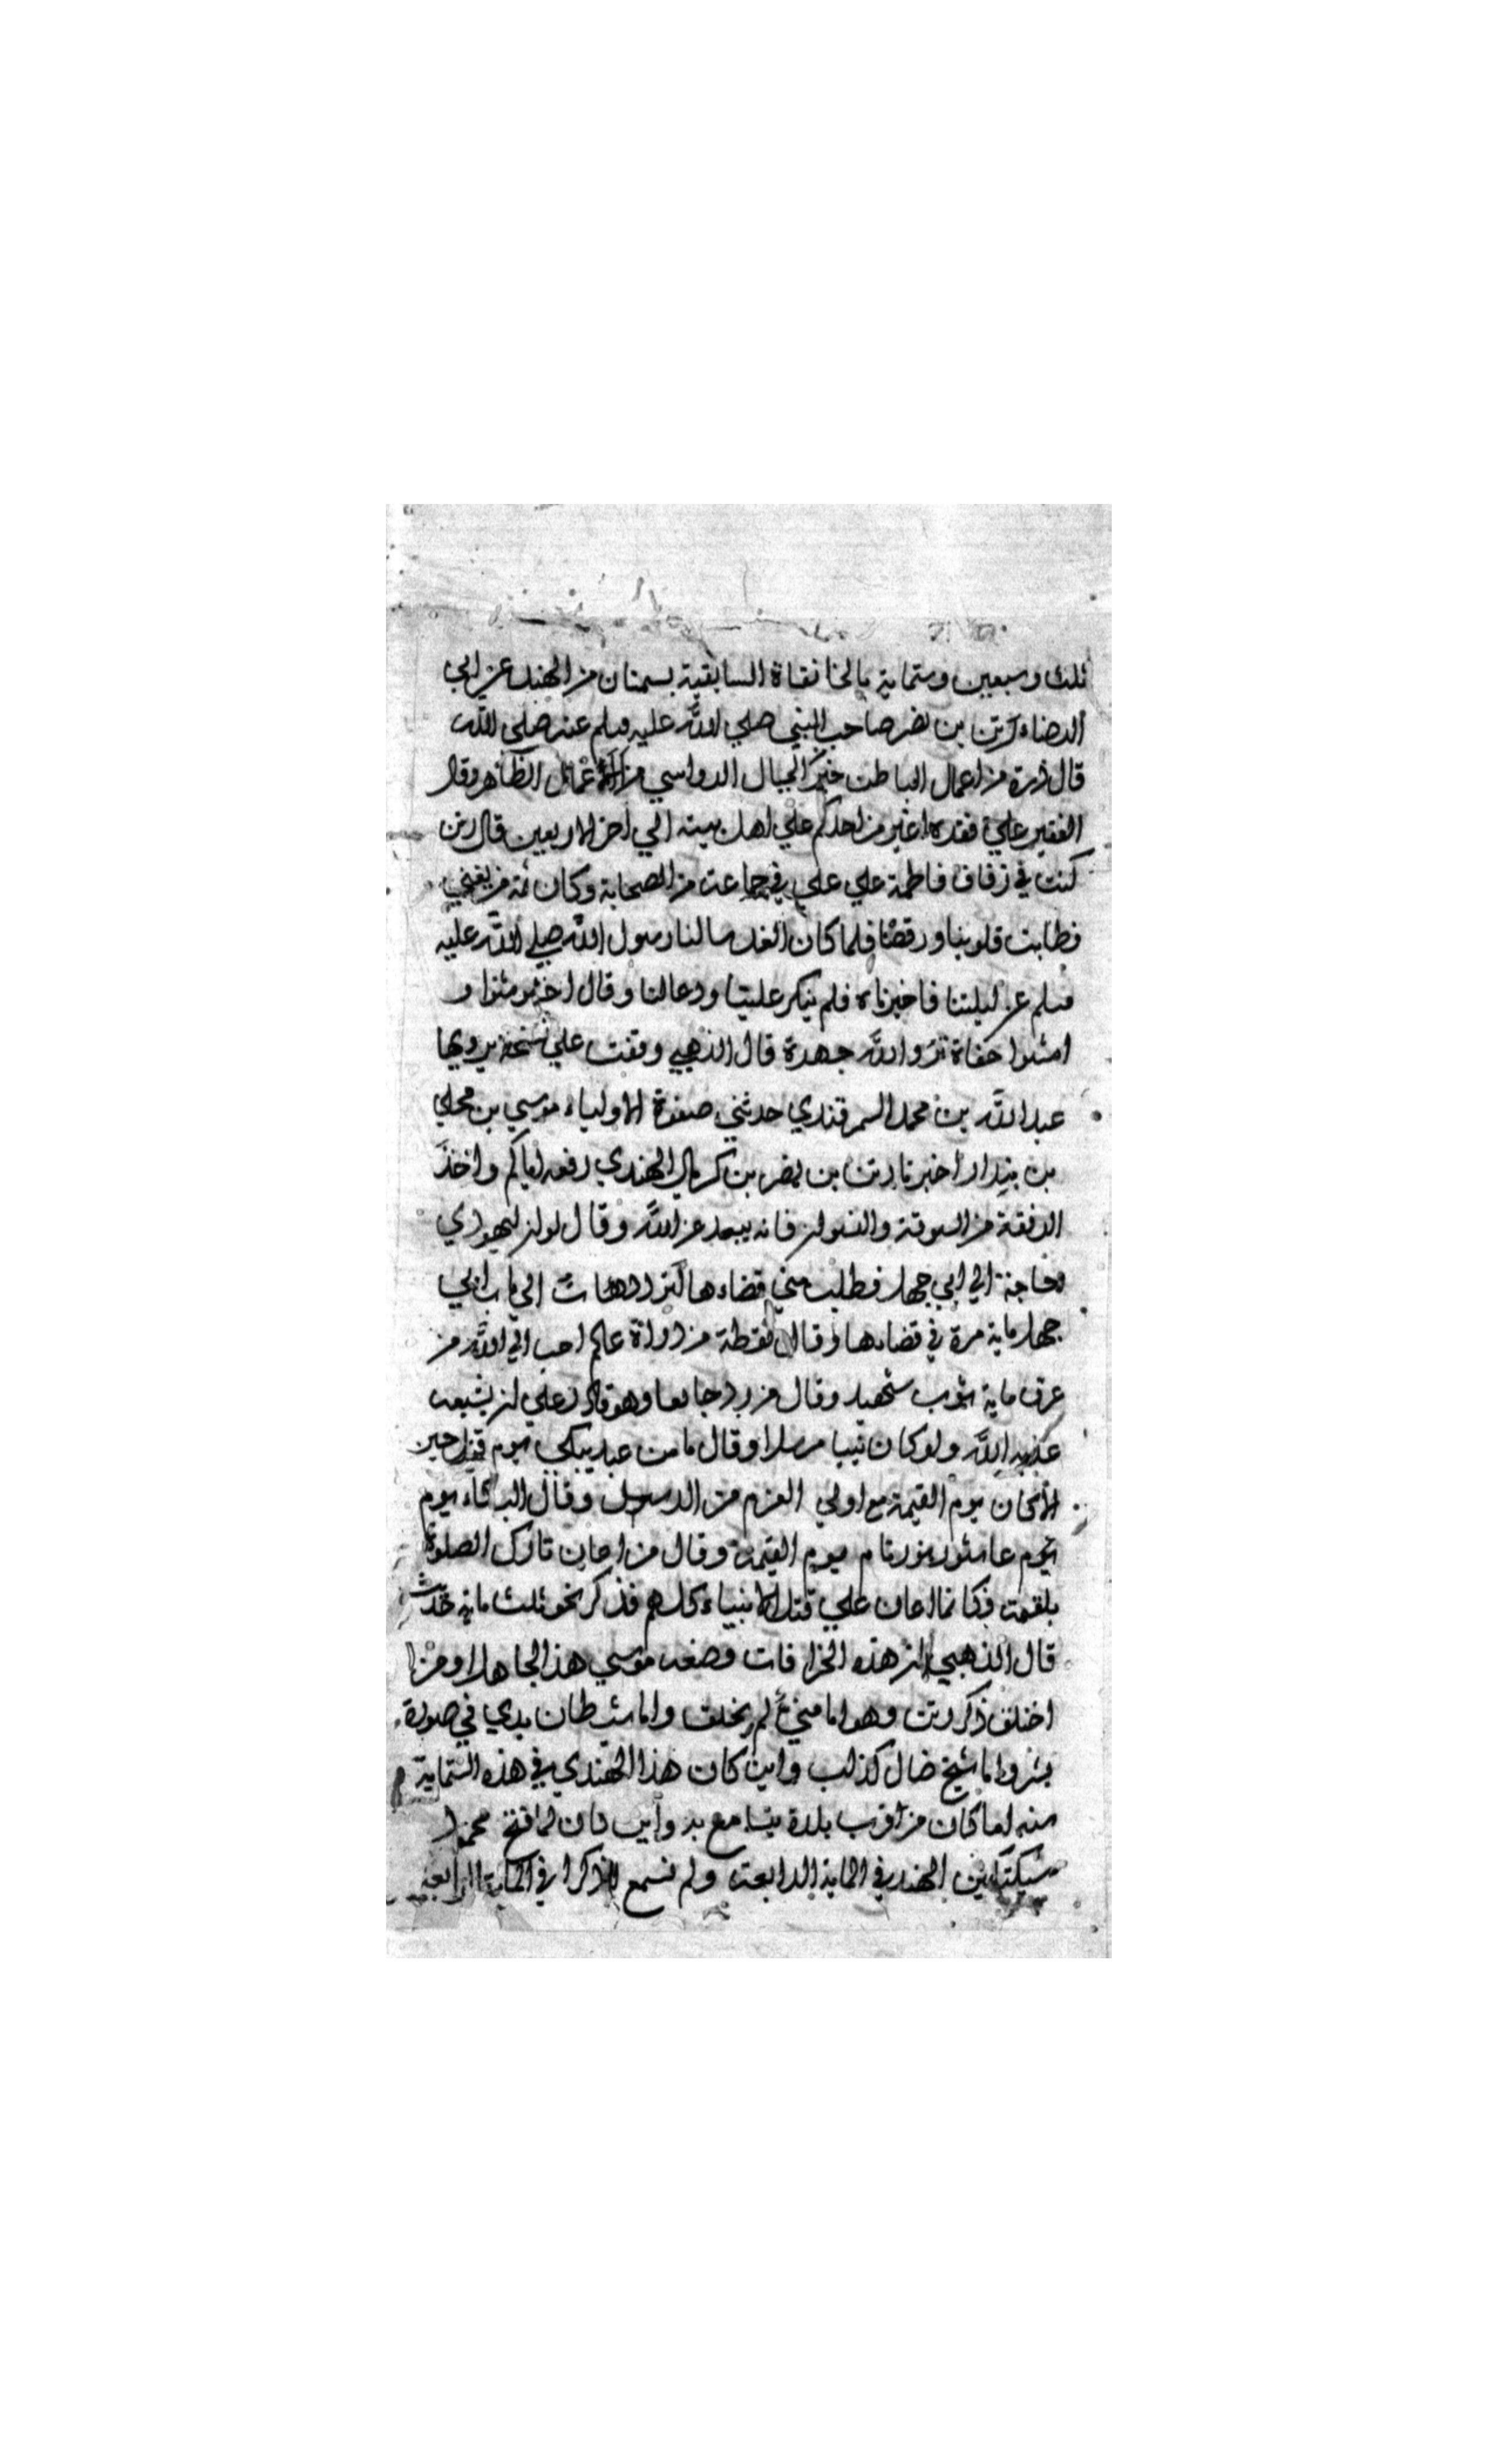 ثلث وسبعين وستماية بالخانقاة السابقية بسمنان من الهند عن ابي
الرضاء رتن بن نصر صاحب النبي صلي الله عليه وسلم عنه صلي الله
قال ذرة من اعمال الباطن خير كالجبال الرواسي من الاعمال الظاهر وقال
الفقير علي فقره اغير من احدكم علي اهل بيته الي اخر الاربعين قال رتن
كنت في زفاف فاطمة علي علي في جماعة من الصحابة وكان ثمة من يغني
فطابت قلوبنا ورقصنا فلما كان الغد سالنا رسول الله صلي الله عليه
وسلم عن ليلتنا فاخبرناه فلم ينكر علينا ودعا لنا وقال اخشوشنوا و
امشوا حفاة تروا الله جهرة قال الذهبي وقفت علي نسخة يرويها
عبد الله بن محمد السمرقندي حدثني صفوة الاولياء موسي بن مجلي
بن بندار اخبرنا رتن بن نصر بن كربال الهندي رفعه اياكم واخذ
الرفقة من السوقة والنسوان فانه يبعد عن الله وقال لو ان ليهودي
حاجة الي ابي جهل فطلب مني قضاءها لترددت الي باب ابي
جهل ماية مرة في قضاءها وقال نقطة من دواة عالم احب الي الله من
عرق ماية ثوب شهيد وقال من رد جايعا وهو قادر علي ان يشبعه
عذبه الله ولو كان نبيا مرسلا وقال ما من عبد يبكي يوم قتل حسين
الا كان يوم القيمة مع اولي العزم من الرسل وقال البكاء يوم
يوم عاشور نور تام يوم القيمة وقال من اعان تارك الصلوة
بلقمة فكانما اعان علي قتل الانبياء كلهم فذكر نحو ثلث ماية حديث
قال الذهبي ان هذه الخرافات وضعه موسي هذا الجاهل او من
اختلق ذكر رتن وهو اما شيء لم يخلق واما شيطان بدي في صورة
بشر واما شيخ ضال كذاب واين كان هذا الهندي في هذه الستماية
سنه اما كان من اقرب بلدة يتسامع به واين كان لما فتح محمود
سبكتكين الهند في الماية الرابعة ولم نسمع له ذكرا في الماية الرابعة